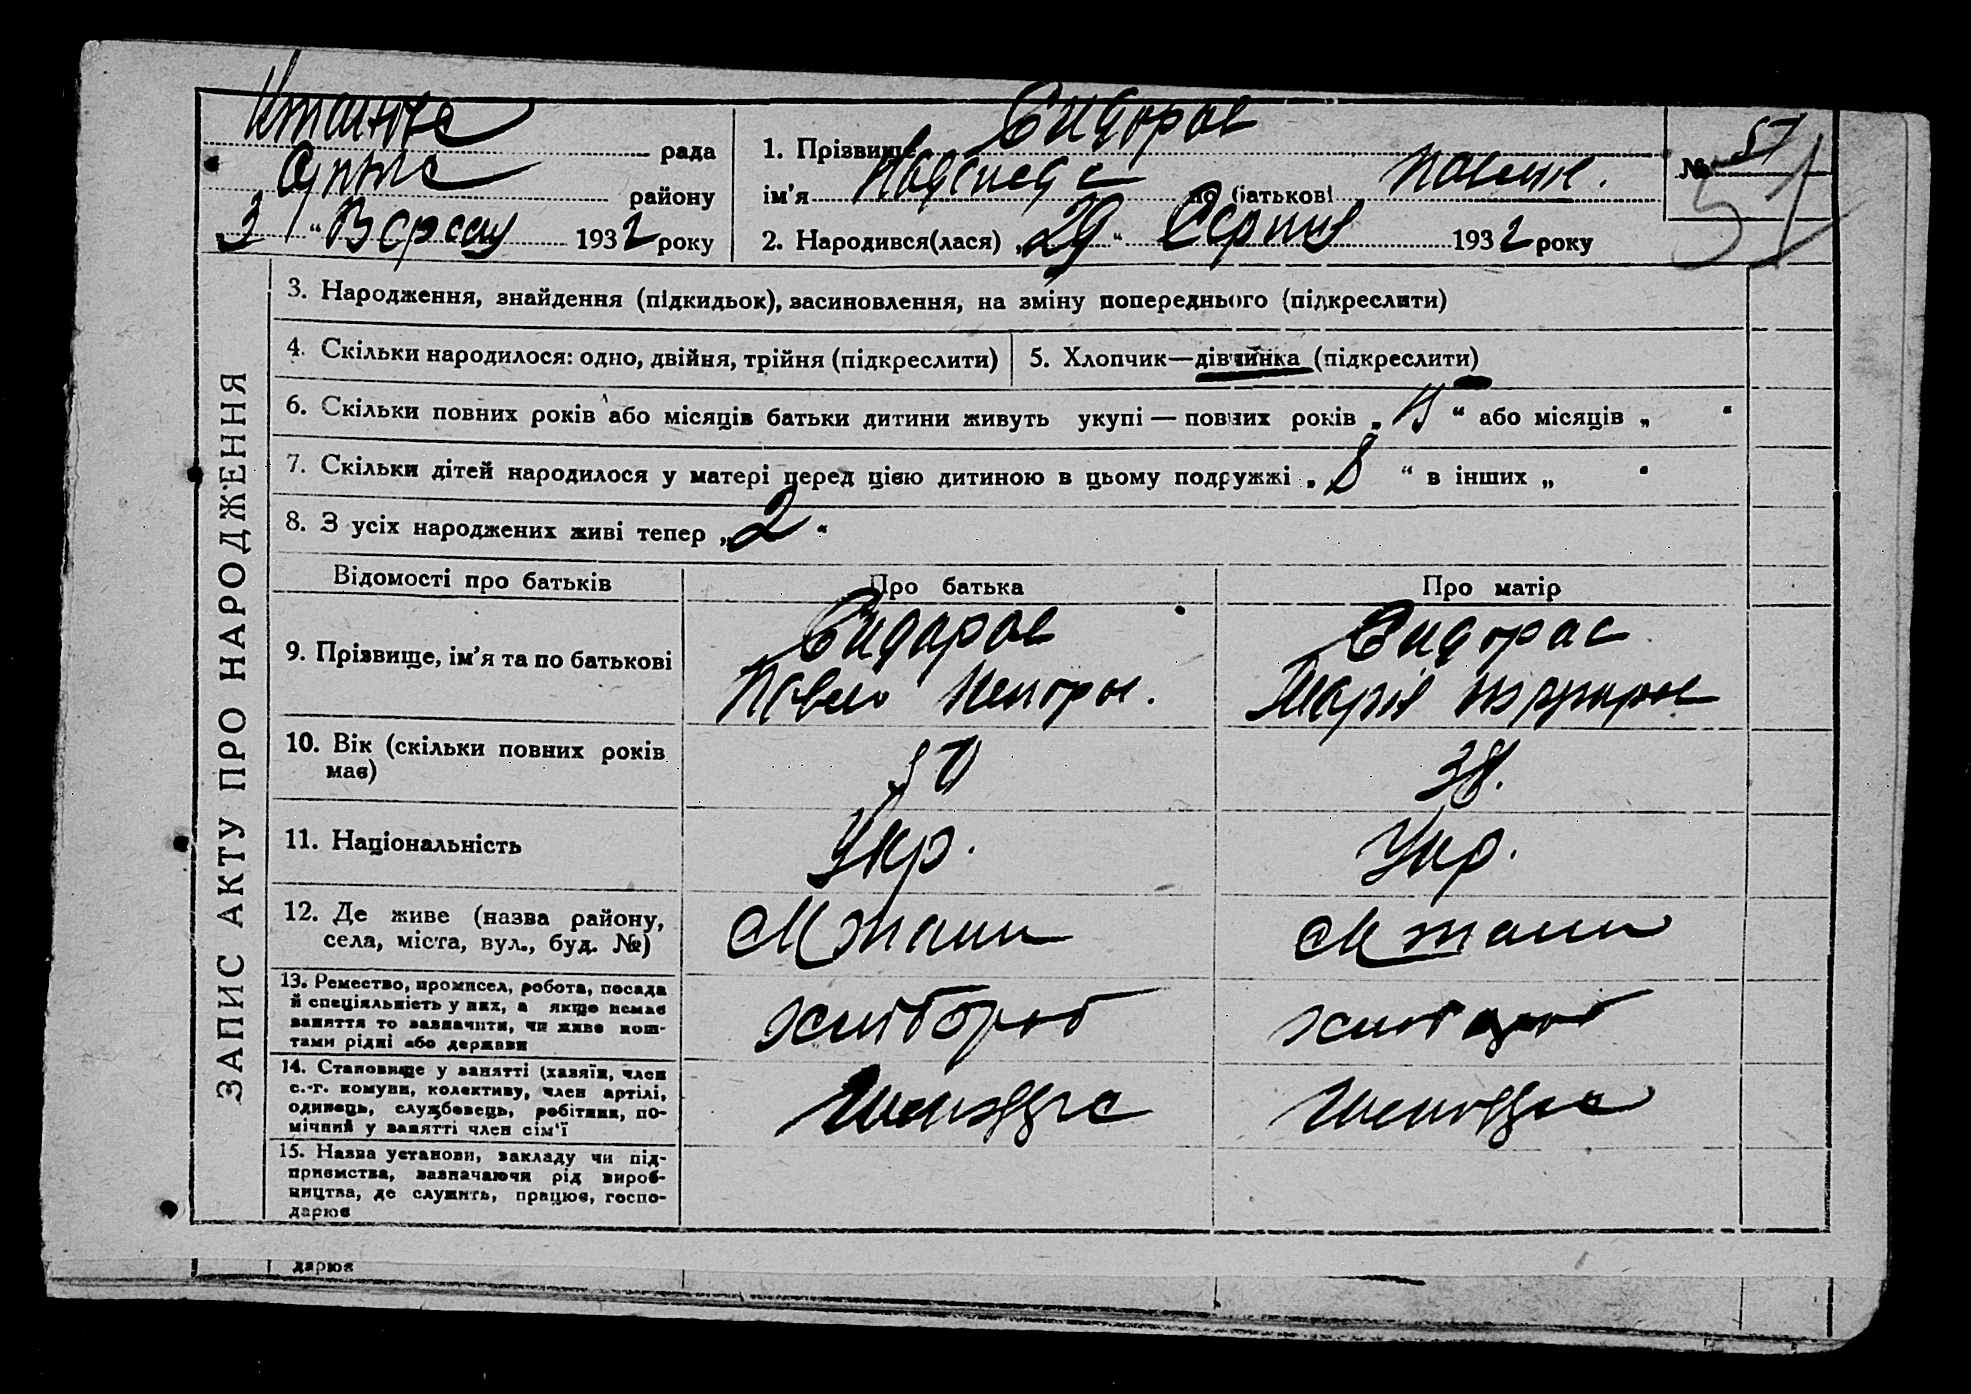 рада
району
3 " Вересня 1932 року
1. Прізвище Сидорас
ім'я по батькові Павлів.
2. Народився(лася) „29" Серпня 1932 року
№ 51
51
ЗАПИС АКТУ ПРО НАРОДЖЕННЯ
3. Народження, знайдення (підкидьок), засиновлення, на зміну попереднього (підкреслити)
4. Скільки народилося: одно, двійня, трійня (підкреслити)
5. Хлопчик—дівчинка (підкреслити)
6. Скільки повних років або місяців батьки дитини живуть укупі — повних років „ " або місяців „ "
7. Скільки дітей народилося у матері перед цією дитиною в цьому подружжі „8 " в інших „ "
8. З усіх народжених живі тепер „2"
Відомості про батьків
Про батька
Про матір
9. Прізвище, ім'я та по батькові
Сидорас
Павло
Сидорас
Марія
10. Вік (скільки повних років має)
50
38.
11. Національність
Укр.
Укр.
12. Де живе (назва району,
села, міста, вул., буд. №)
13. Ремество, промисел, робота, посада
й спеціяльність у них, а якщо немає
заняття то зазначити, чи живе кош-
тами рідні або держави
хлібороб
хлібороб
14. Становище у занятті (хазяїн, член
с.-г. комуни, колективу, член артілі,
одинець, службовець, робітник, по-
мічний у занятті член сім'ї
15. Назва установи, закладу чи під-
приємства, зазначаючи рід вироб-
ництва, де служить, працює, госпо-
дарює
дарює